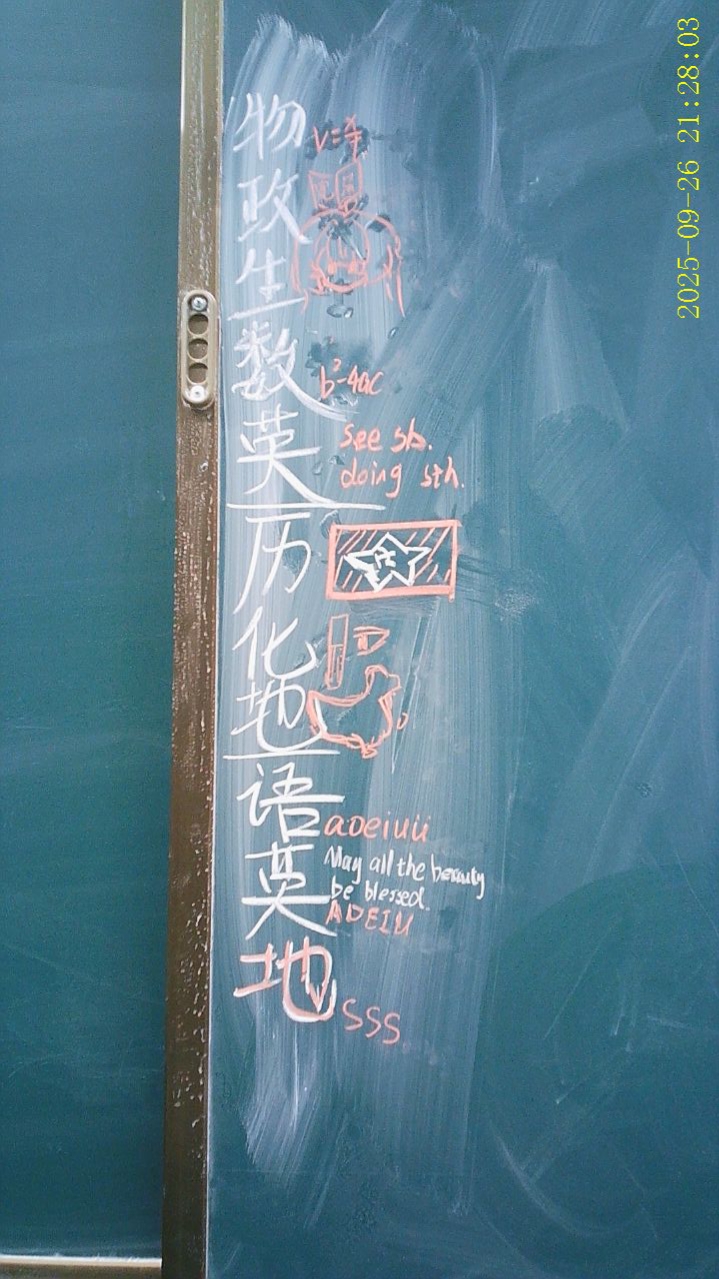 物
政
生
数
b²-4ac
英
see sb.
doing sth.
历
化
地
语
aoeiuü
英
May all the beauty
be blessed.
AOEIU
地
SSS
2025-09-26 21:28:03